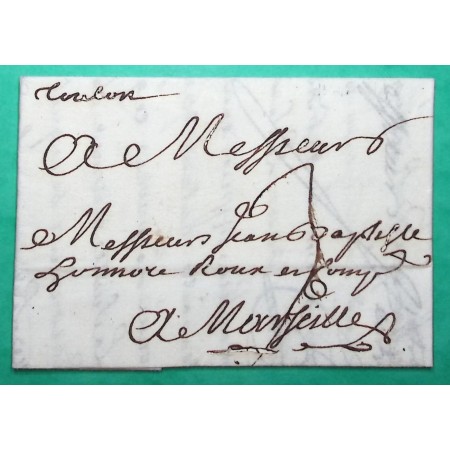 Toulon
A Messieurs
Messieurs Jean Baptiste
honnore Roux et Comp
A Marseille